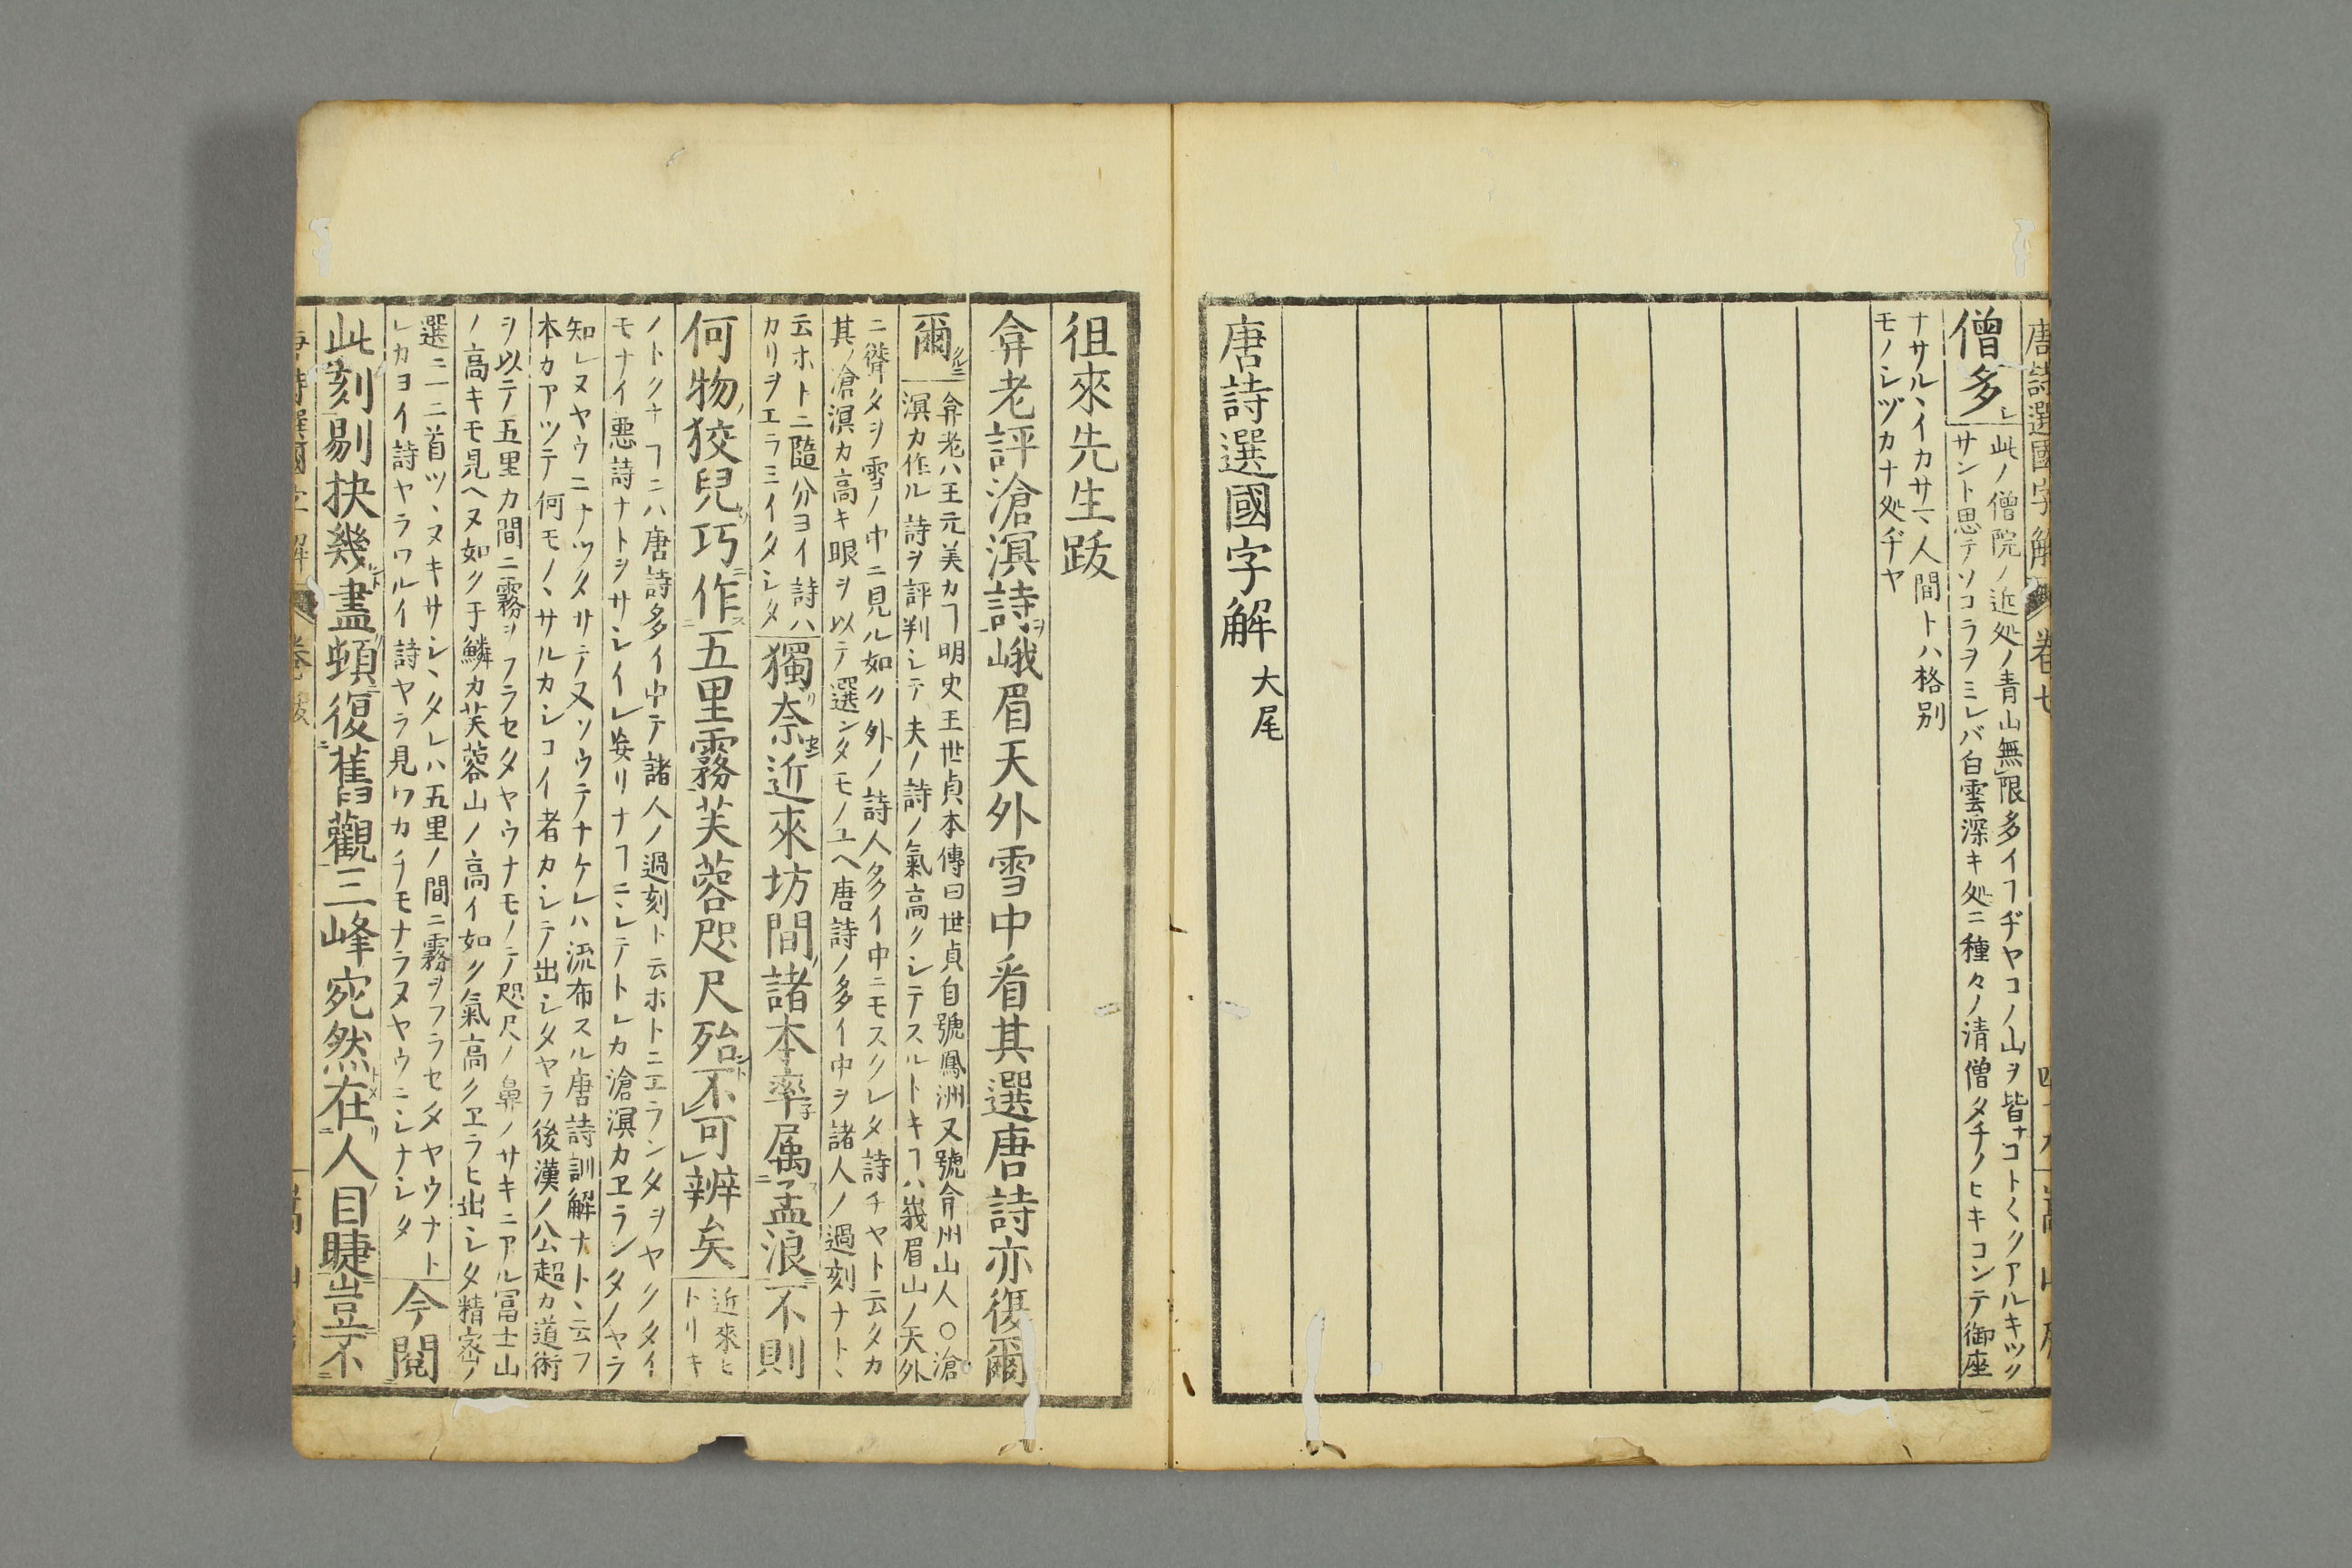 唐詩選國字解 卷七
僧多
此ノ僧院ノ近処ノ青山無限多イヿヂヤコノ山ヲ皆ナコト〱クアルキツク
サント思テソコラヲミレバ白雲深キ処ニ種々ノ清僧タチノヒキコンテ御座
ナサルヽイカサマヽ人間トハ格別
モノシヅカナ処ヂヤ
唐詩選國字解 大尾
徂來先生跋
弇老評滄溟詩峨眉天外雪中看其選唐詩亦復爾
爾
弇老ハ王元美カヿ明史王世貞本傳曰世貞自號鳳洲又號弇州山人○滄
溟カ作ル詩ヲ評判シテ夫ノ詩ノ氣高クシテスルトキヿハ峩眉山ノ天外
ニ聳タヲ雪ノ中ニ見ル如ク外ノ詩人多イ中ニモスクレタ詩チヤト云タカ
其ノ滄溟カ高キ眼ヲ以テ選ンタモノユヘ唐詩ノ多イ中ヲ諸人ノ過刻ナトヽ
云ホトニ隨分ヨイ詩ハ
カリヲエラミイタシタ
獨奈近來坊間諸本率属孟浪不則
何物狡兒巧作五里霧芙蓉咫尺殆不可辨矣
近來ヒ
トリキ
ノトクナヿニハ唐詩多イ中テ諸人ノ過刻ト云ホトニエランタヲヤクタイ
モナイ悪詩ナトヲサシイレ妄リナヿニシテトレカ滄溟カヱランタノヤラ
知レヌヤウニナツタサテ又ソウテナケレハ流布スル唐詩訓解ナトヽ云フ
本カアツテ何モノヽサルカシコイ者カシテ出シタヤラ後漢ノ公超カ道術
ヲ以テ五里カ間ニ霧ヲフラセタヤウナモノテ咫尺ノ鼻ノサキニアル冨士山
ノ高キモ見ヘヌ如ク于鱗カ芙蓉山ノ高イ如ク氣高クヱラヒ出シタ精密ノ
選ニ一二首ツヽヌキサシヽタレハ五里ノ間ニ霧ヲフラセタヤウナト
レカヨイ詩ヤラワルイ詩ヤラ見ワカチモナラヌヤウニシナシタ
今閱
此刻剔抉幾盡頓復舊觀三峰宛然在人目睫豈不